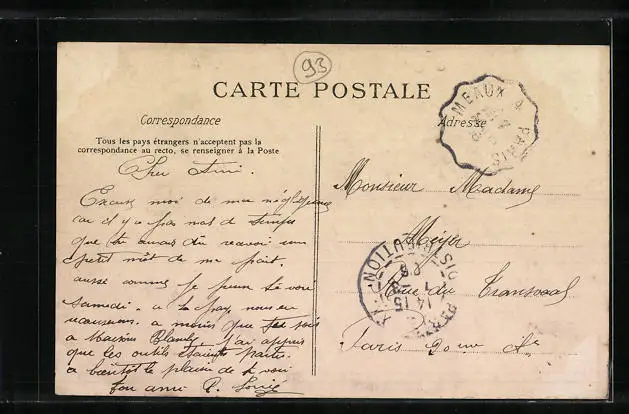 93
CARTE POSTALE
Correspondance
Adresse
Tous les pays étrangers n'acceptent pas la
correspondance au recto, se renseigner à la Poste
MEAUX A PARIS
Cher Ami.
Excuse moi de ma négligence
car il y a pas mal de temps
que tu aurais dû recevoir un
petit môt de ma part.
aussi comme je pense te voir
Samedi. a la paye nous en
recauserons. a moins que tu sois
a Maisons Blanche, j'ai appris
que les outils étaient partis.
a bientôt le plaisir de te voir
ton ami P.
Monsieur Madame
Meyer
Rue du Transvaal
Paris 20me Ae
PARIS DISTRIBUTION
14 15